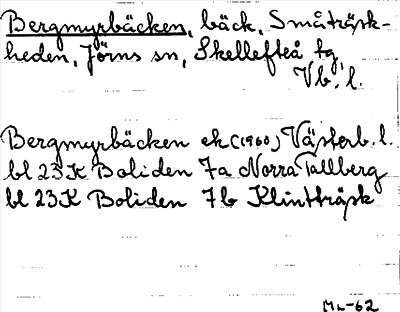 Bergmyrbäcken, bäck, Småträsk-
heden, Jörns sn, Skellefteå tg,
Vb. l.
Bergmyrbäcken ek (1960) Västerb. l.
bl 23 K Boliden 7a Norra Tallberg
bl 23 K Boliden 7b Klintträsk
ML-62